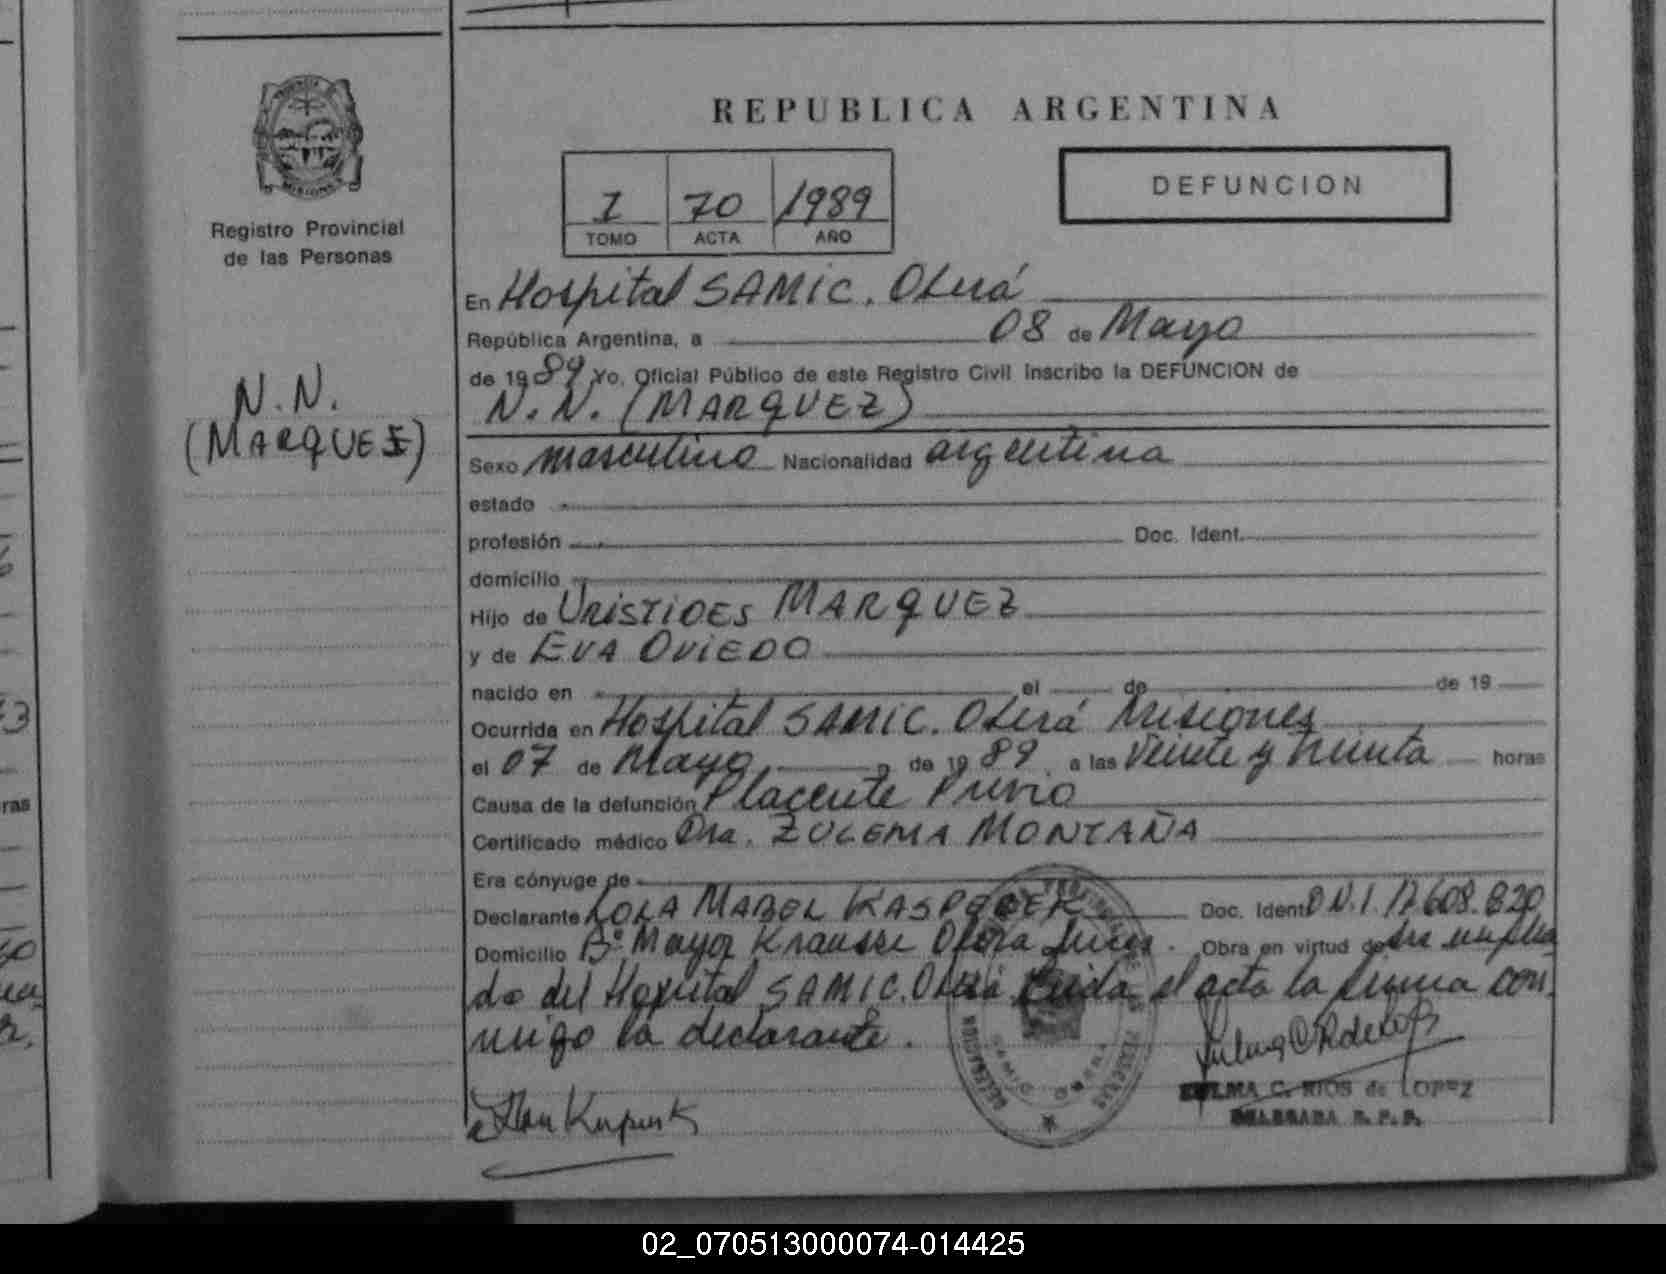 REPUBLICA ARGENTINA
I 70 1989
TOMO ACTA AÑO
DEFUNCION
Registro Provincial
de las Personas
N.N.
(MARQUEZ)
En Hospital SAMIC. Oberá
República Argentina, a 08 de Mayo
de 1989 Yo, Oficial Público de este Registro Civil Inscribo la DEFUNCION de
N.N. (MARQUEZ)
Sexo masculino Nacionalidad argentina
estado
profesión Doc. Ident.
domicilio
Hijo de URISTIDES MARQUEZ
y de EVA OVIEDO
nacido en el de de 19
Ocurrida en Hospital SAMIC. Oberá Misiones
el 07 de Mayo de 1989 a las Veinte y treinta horas
Causa de la defunción Placente Previo
Certificado médico Dra. ZULEMA MONTAÑA
Era cónyuge de
Declarante LOLA MABEL Doc. Ident D.N.I. 17.608.820
Domicilio Bº Mayor Krausse Oberá Obra en virtud de ser emplea
do del Hospital SAMIC. Oberá Leida el acta la firma con
migo la declarante.
ZULMA C. RIOS de LOPEZ
DELEGADA R. P. P.
02_070513000074-014425